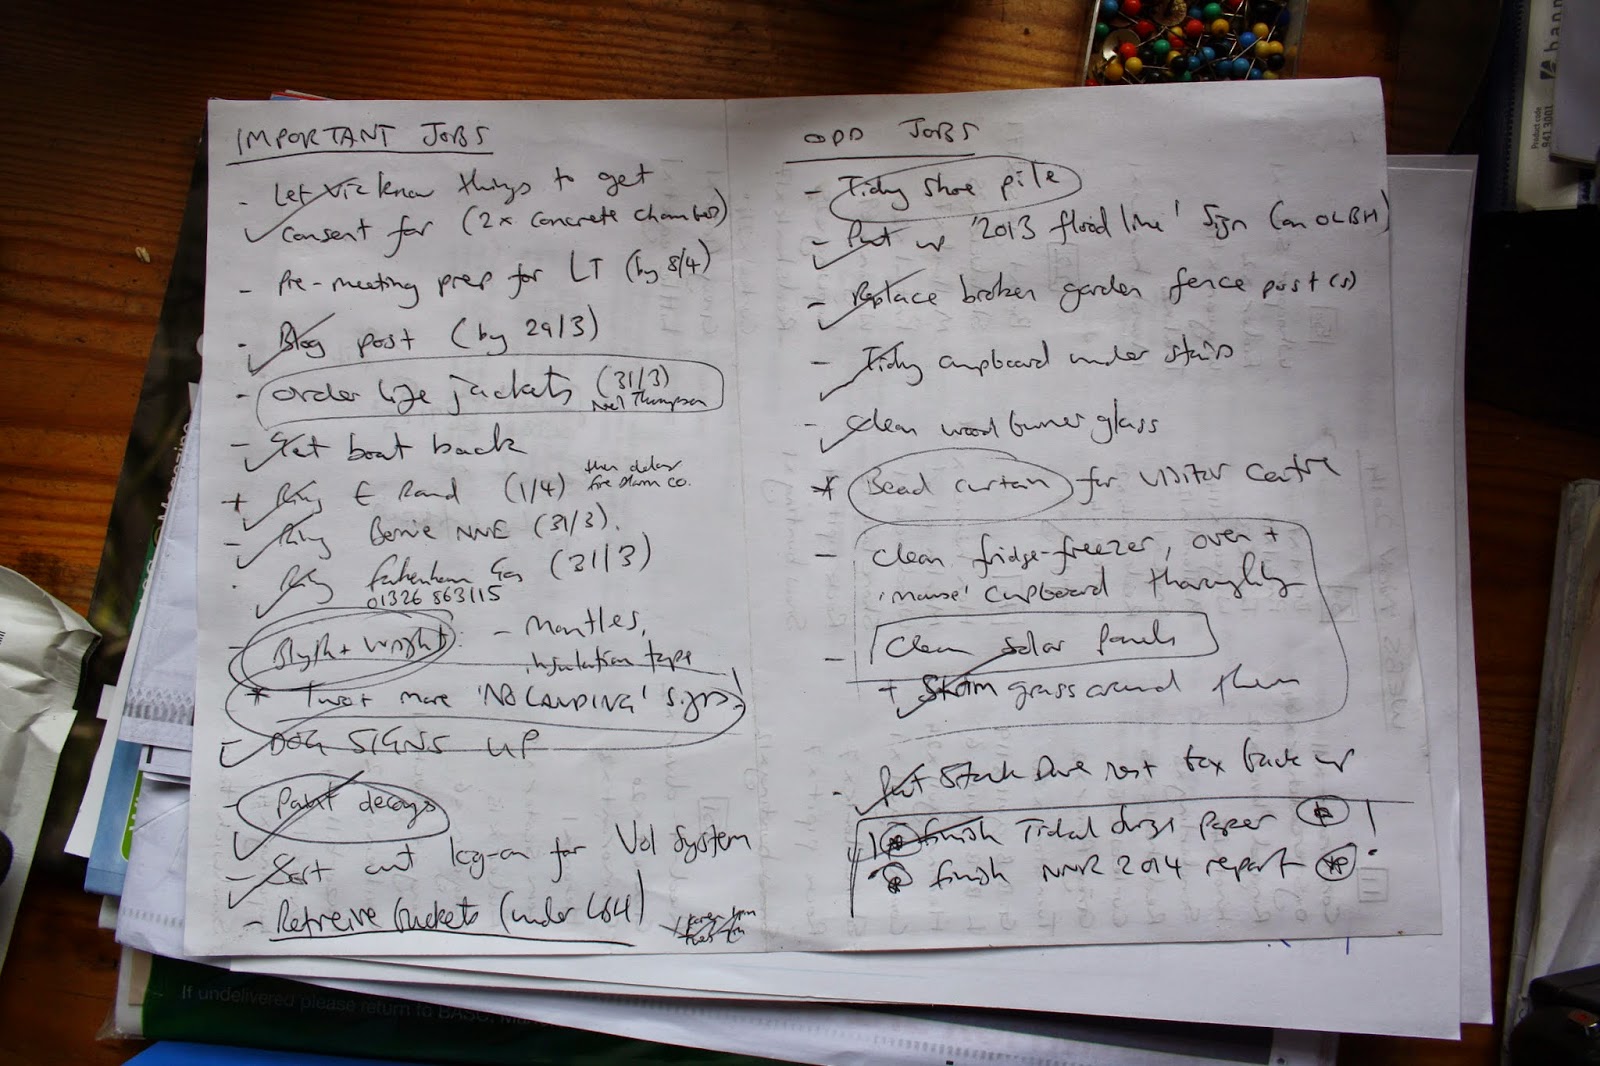 IMPORTANT JOBS
- Let Vic know things to get
consent for (2x concrete chambers)
- Pre-meeting prep for LT (by 8/4)
- Blog post (by 29/3)
- Order life jackets (31/3)
Neil Thompson
- Get boat back
+ Ring E Rand (1/4) then delay
fire alarm co.
- Ring Bernie NNE (31/3).
- Ring Fakenham Gas (31/3)
01326 863115
- Blyth + Wright: - Mantles,
insulation tape
* Two+ more 'NO LANDING' signs
- DOG SIGNS UP
- Paint decoys
- Sort out log-on for Vol System
- Retreive buckets (under L64)
ODD JOBS
- Tidy shoe pile
- Put up '2013 flood line' sign (on OLBH)
- Replace broken garden fence post(s)
- Tidy cupboard under stairs
- Clean wood burner glass
* Bead curtain for Visitor Centre
- Clean fridge-freezer, oven +
'mouse' cupboard thoroughly
- Clean solar panels
+ Strim grass around them
- Put Stock Dove nest box back up
finish Tidal surge paper
finish NNR 2014 report
If undelivered please return to BASC,
Magazine
Product code
941.3001